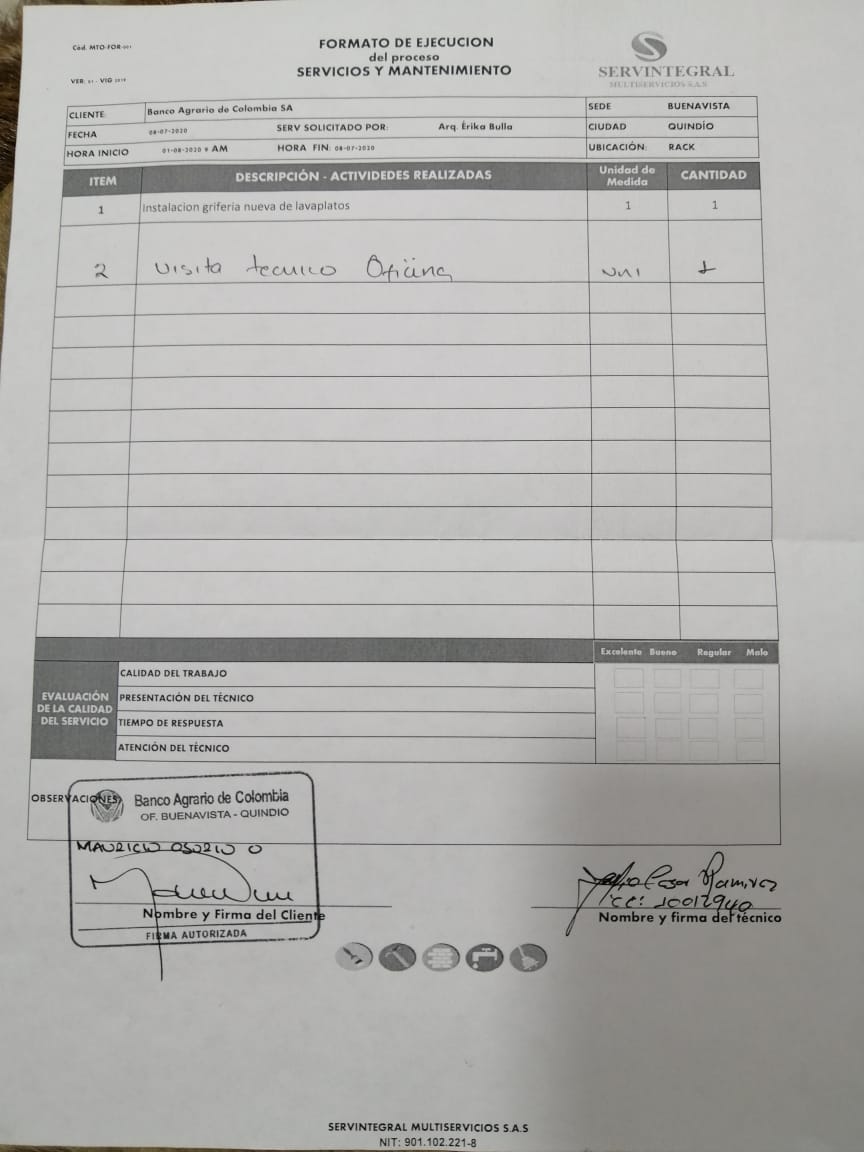 Cód. MTO-FOR-001
VER: 01 - VIG 2019
FORMATO DE EJECUCION
del proceso
SERVICIOS Y MANTENIMIENTO
SERVINTEGRAL
MULTISERVICIOS S.A.S
CLIENTE: Banco Agrario de Colombia SA SEDE BUENAVISTA
FECHA 08-07-2020 SERV SOLICITADO POR: Arq. Érika Bulla CIUDAD QUINDÍO
HORA INICIO 01-08-2020 9 AM HORA FIN: 08-07-2020 UBICACIÓN: RACK
ITEM DESCRIPCIÓN - ACTIVIDEDES REALIZADAS Unidad de Medida CANTIDAD
1 Instalacion griferia nueva de lavaplatos 1 1
2 Visita tecnico Oficina Uni 1
Excelente Bueno Regular Malo
EVALUACIÓN DE LA CALIDAD DEL SERVICIO
CALIDAD DEL TRABAJO
PRESENTACIÓN DEL TÉCNICO
TIEMPO DE RESPUESTA
ATENCIÓN DEL TÉCNICO
OBSERVACIONES
Banco Agrario de Colombia
OF. BUENAVISTA - QUINDIO
MAURICIO OSORIO O
Nombre y Firma del Cliente
FIRMA AUTORIZADA
Ramirez
CC: 10012940
Nombre y firma del técnico
SERVINTEGRAL MULTISERVICIOS S.A.S
NIT: 901.102.221-8